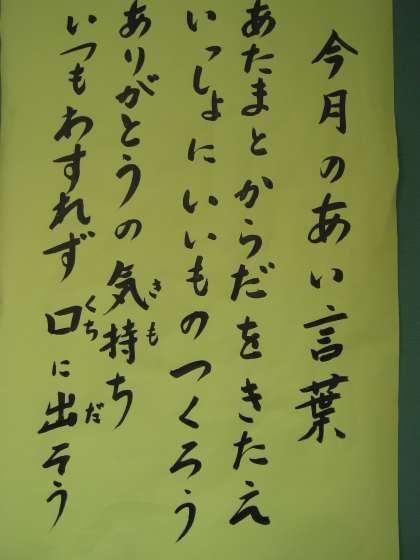 今月のあい言葉
あたまとからだをきたえ
いっしょにいいものつくろう
ありがとうの気持ち
きも
いつもわすれず口に出そう
くちだ